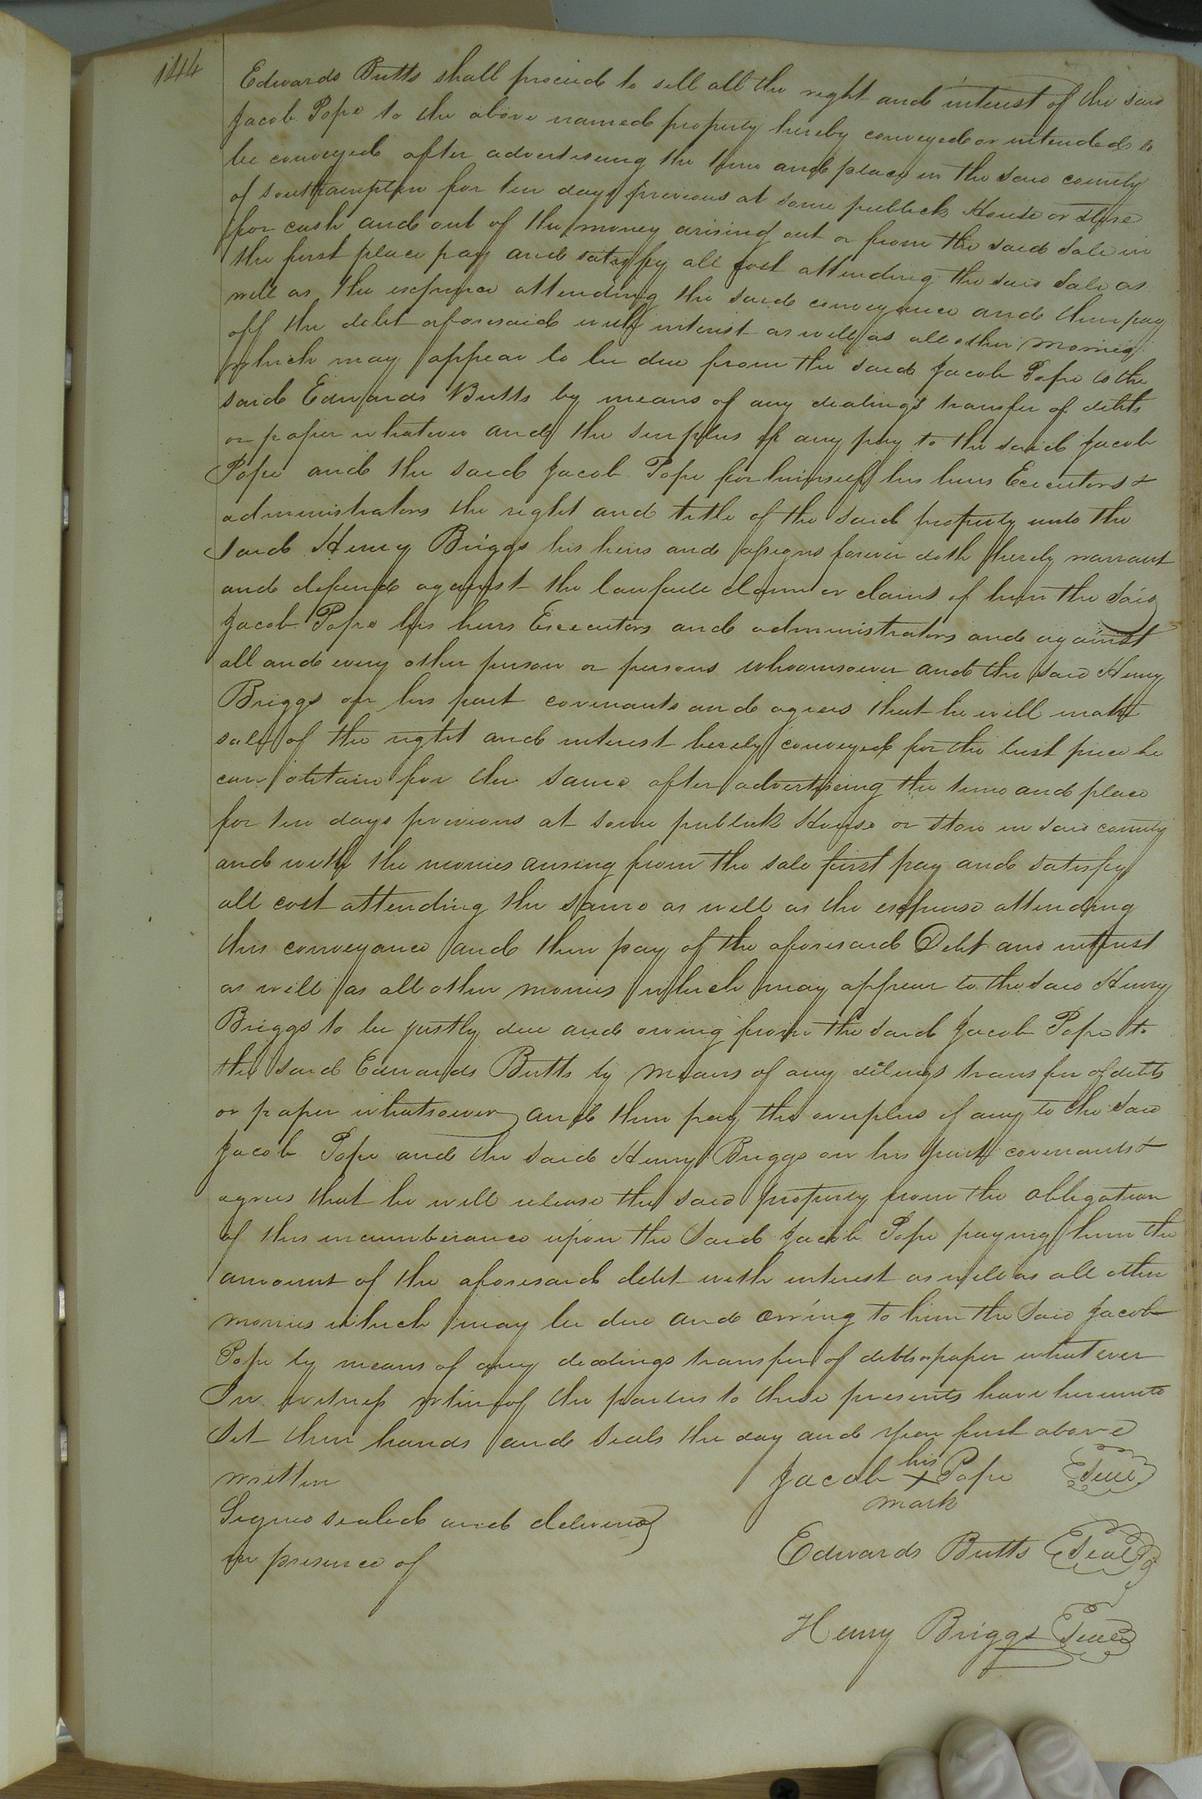 144
Edwards Butts shall proceed to sell all the right and interest of the said
Jacob Pope to the above named property hereby conveyed or intended to
be conveyed after advertising the time and place in the said county
of Southampton for ten days previous at some publick House or store
for cash and out of the money arising out or from the said sale in
the first place pay and satisfy all cost attending the said sale as
well as the expence attending the said conveyance and then pay
off the debt aforesaid with interest as well as all other monies
which may appear to be due from the said Jacob Pope to the
said Edwards Butts by means of any dealings transfer of debts
or paper whatever and the surplus if any pay to the said Jacob
Pope and the said Jacob Pope for himself his heirs Executors &
administrators the right and title of the said property unto the
said Henry Briggs his heirs and assigns forever doth hereby warrant
and defend against the lawfull claim or claims of him the said
Jacob Pope his heirs Executors and administrators and against
all and every other person or persons whoomsoever and the said Henry
Briggs on his part covenants and agrees that he will make
sale of the right and interest hereby conveyed for the best price he
can obtain for the same after advertising the time and place
for ten days previous at some publick House or store in said county
and with the monies arising from the sale first pay and satisfy
all cost attending the same as well as the expense attending
this conveyance and then pay of the aforesaid Debt and interest
as well as all other monies which may appear to the said Henry
Briggs to be justly due and owing from the said Jacob Pope to
the said Edwards Butts by means of any dilings transfer of debts
or paper whatsoever and then pay the overplus if any to the said
Jacob Pope and the said Henry Briggs on his part covenants &
agrees that he will release the said property from the obligation
of this incumberance upon the said Jacob Pope paying him the
amount of the aforesaid debt with interest as well as all other
monies which may be due and owing to him the said Jacob
Pope by means of any dealings transfer of debts or paper whatever
In witness whereof the parties to these presents have hereunto
set their hands and seals the day and year first above
written
Jacob his X mark Pope Seal
Signed sealed and delivered
in presence of
Edwards Butts Seal
Henry Briggs Seal